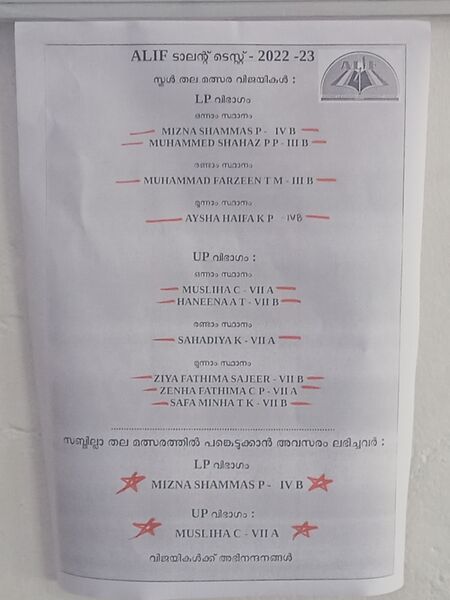 ALIF ടാലന്റ് ടെസ്റ്റ് - 2022 -23
ALIF
സ്കൂൾ തല മത്സര വിജയികൾ :
LP വിഭാഗം
ഒന്നാം സ്ഥാനം
MIZNA SHAMMAS P - IV B
MUHAMMED SHAHAZ P P - III B
രണ്ടാം സ്ഥാനം
MUHAMMAD FARZEEN T M - III B
മൂന്നാം സ്ഥാനം
AYSHA HAIFA K P - IVB
UP വിഭാഗം :
ഒന്നാം സ്ഥാനം
MUSLIHA C - VII A
HANEENA A T - VII B
രണ്ടാം സ്ഥാനം
SAHADIYA K - VII A
മൂന്നാം സ്ഥാനം
ZIYA FATHIMA SAJEER - VII B
ZENHA FATHIMA C P - VII A
SAFA MINHA T K - VII B
സബ്ജില്ലാ തല മത്സരത്തിൽ പങ്കെടുക്കാൻ അവസരം ലഭിച്ചവർ :
LP വിഭാഗം
MIZNA SHAMMAS P - IV B
UP വിഭാഗം :
MUSLIHA C - VII A
വിജയികൾക്ക് അഭിനന്ദനങ്ങൾ